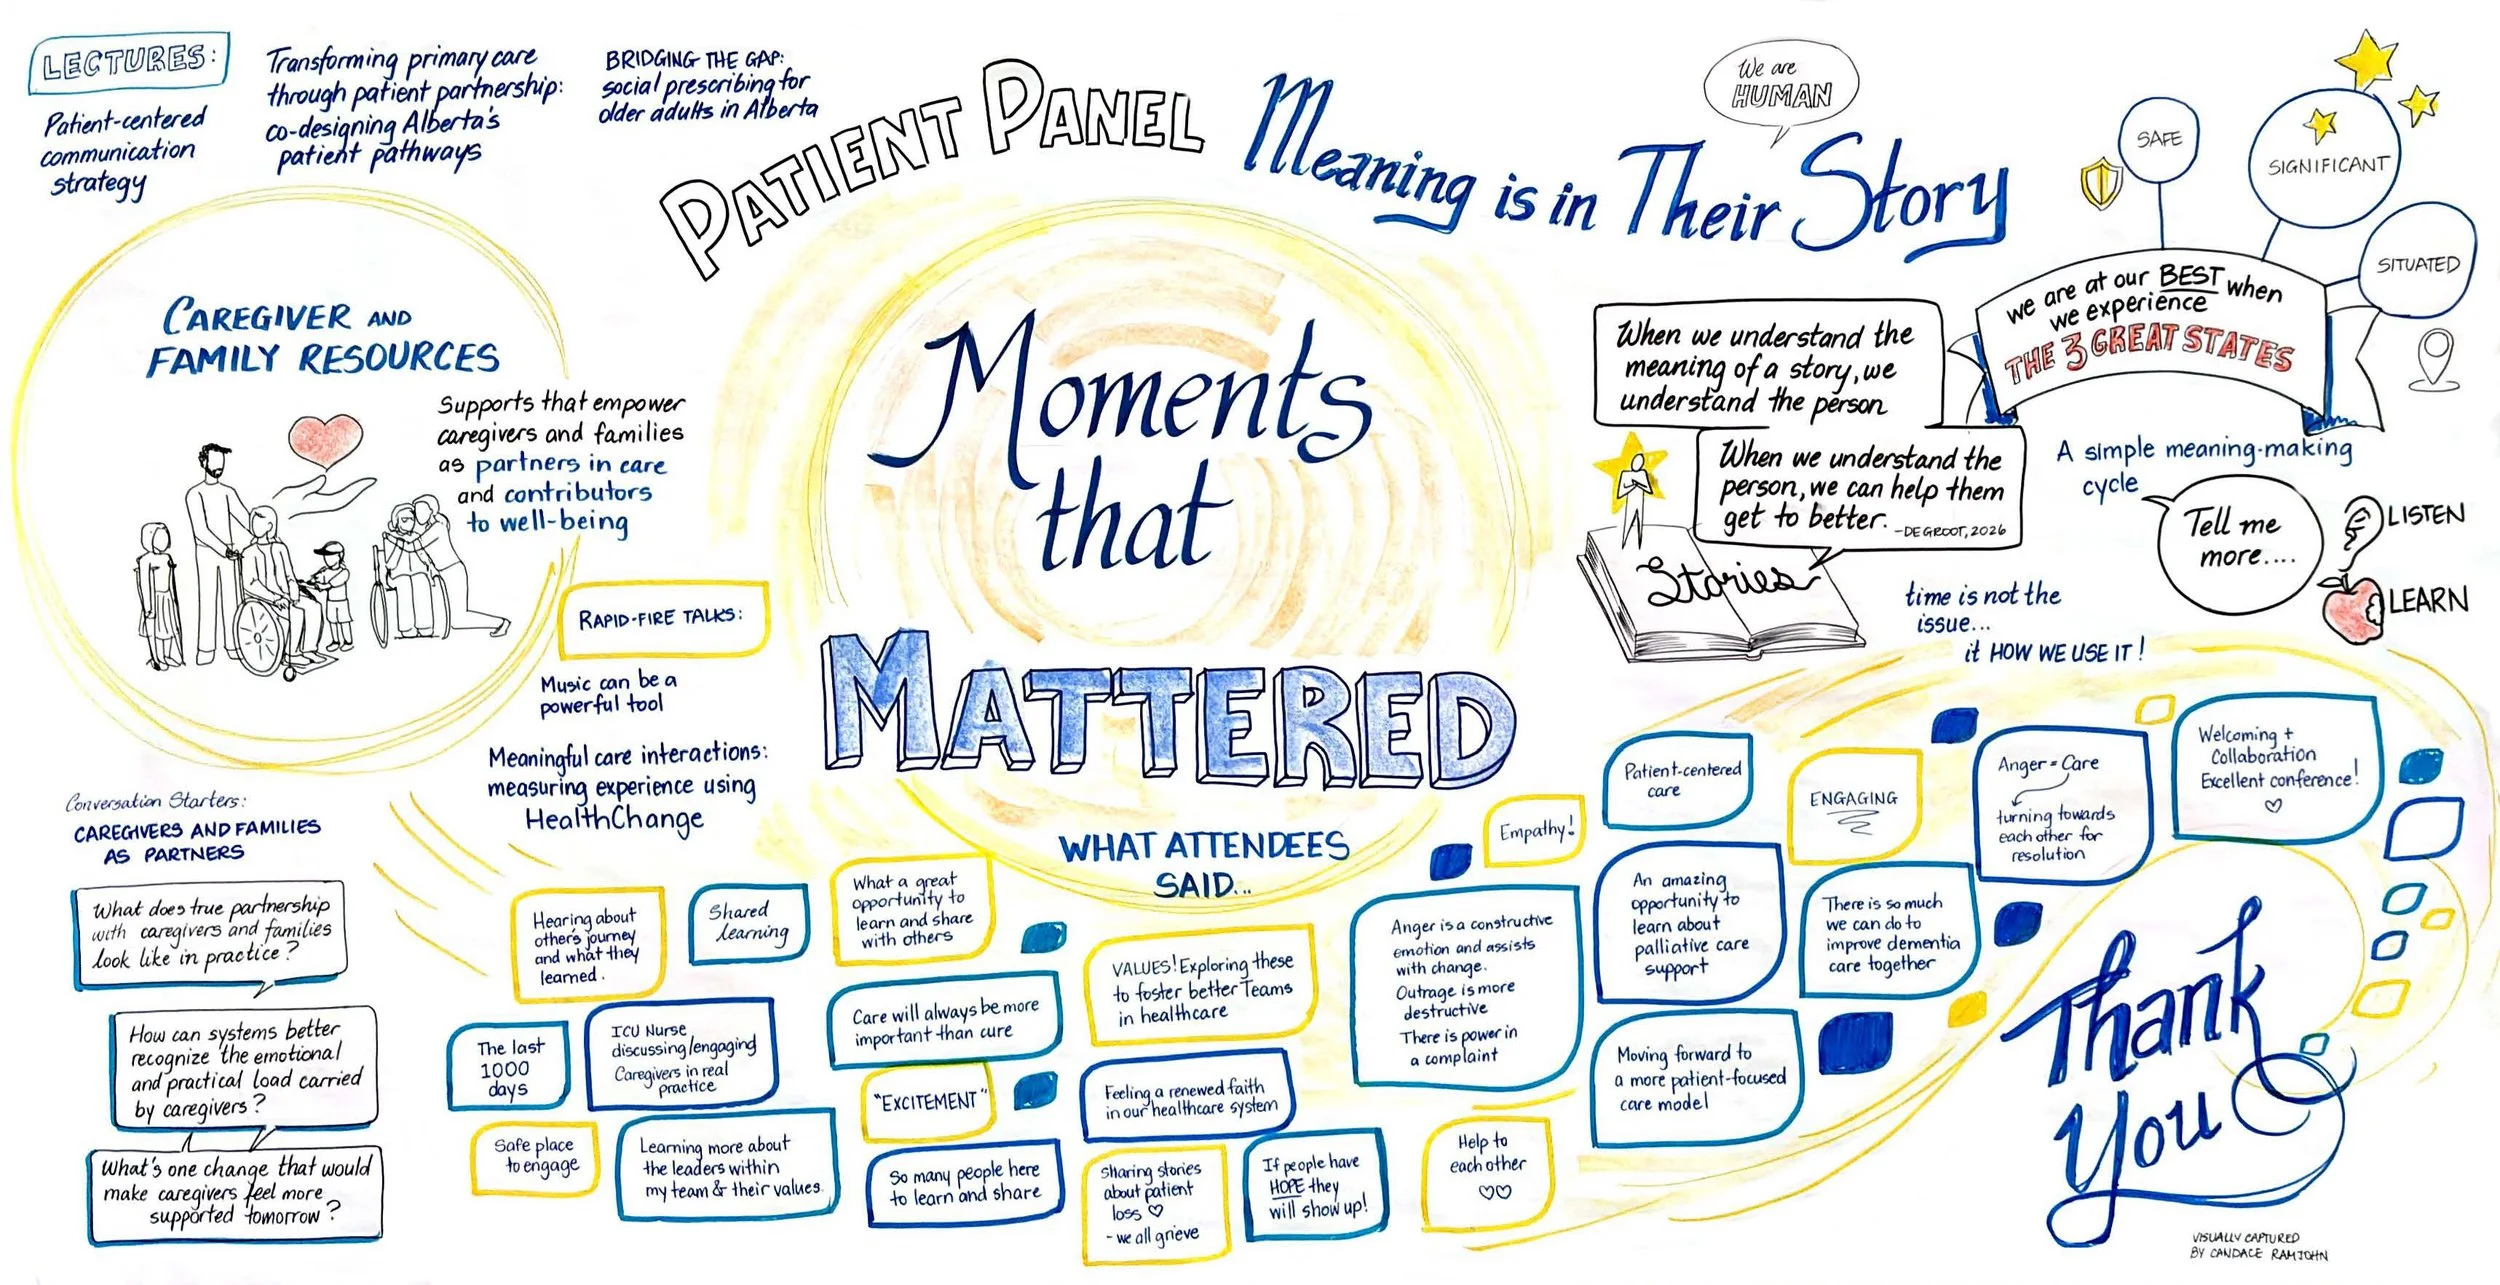 LECTURES:
Patient-centered
communication
strategy
Transforming primary care
through patient partnership:
co-designing Alberta's
patient pathways
BRIDGING THE GAP:
social prescribing for
older adults in Alberta
PATIENT PANEL
Meaning is in Their Story
We are
HUMAN
SAFE
SIGNIFICANT
SITUATED
we are at our BEST when
we experience
THE 3 GREAT STATES
CAREGIVER AND
FAMILY RESOURCES
Supports that empower
caregivers and families
as partners in care
and contributors
to well-being
Moments
that
MATTERED
When we understand the
meaning of a story, we
understand the person
When we understand the
person, we can help them
get to better.
-DE GROOT, 2026
Stories
A simple meaning-making
cycle
Tell me
more....
LISTEN
LEARN
time is not the
issue...
it HOW WE USE IT!
RAPID-FIRE TALKS:
Music can be a
powerful tool
Meaningful care interactions:
measuring experience using
HealthChange
Conversation Starters:
CAREGIVERS AND FAMILIES
AS PARTNERS
What does true partnership
with caregivers and families
look like in practice?
How can systems better
recognize the emotional
and practical load carried
by caregivers?
What's one change that would
make caregivers feel more
supported tomorrow?
WHAT ATTENDEES
SAID...
Hearing about
other's journey
and what they
learned.
Shared
learning
What a great
opportunity to
learn and share
with others
The last
1000
days
ICU Nurse
discussing/engaging
Caregivers in real
practice
Care will always be more
important than cure
VALUES! Exploring these
to foster better Teams
in healthcare
"EXCITEMENT"
Feeling a renewed faith
in our healthcare system
Safe place
to engage
Learning more about
the leaders within
my team & their values.
So many people here
to learn and share
Sharing stories
about patient
loss ♡
- we all grieve
If people have
HOPE they
will show up!
Help to
each other
♡♡
Empathy!
Anger is a constructive
emotion and assists
with change.
Outrage is more
destructive
There is power in
a complaint
Patient-centered
care
ENGAGING
Anger = Care
turning towards
each other for
resolution
Welcoming +
Collaboration
Excellent conference!
♡
An amazing
opportunity to
learn about
palliative care
support
There is so much
we can do to
improve dementia
care together
Moving forward to
a more patient-focused
care model
Thank
You
VISUALLY CAPTURED
BY CANDACE RAMJOHN